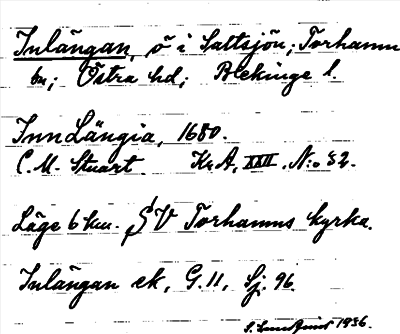 Inlängan, ö i Saltsjön, Torhamn
sn; Östra hd; Blekinge l.
InnLängia, 1680.
C. M. Stuart KrA, XXII. N:o 32.
Läge 6 km. SV Torhamns kyrka.
Inlängan ek, G.11, Sj. 96.
1936.